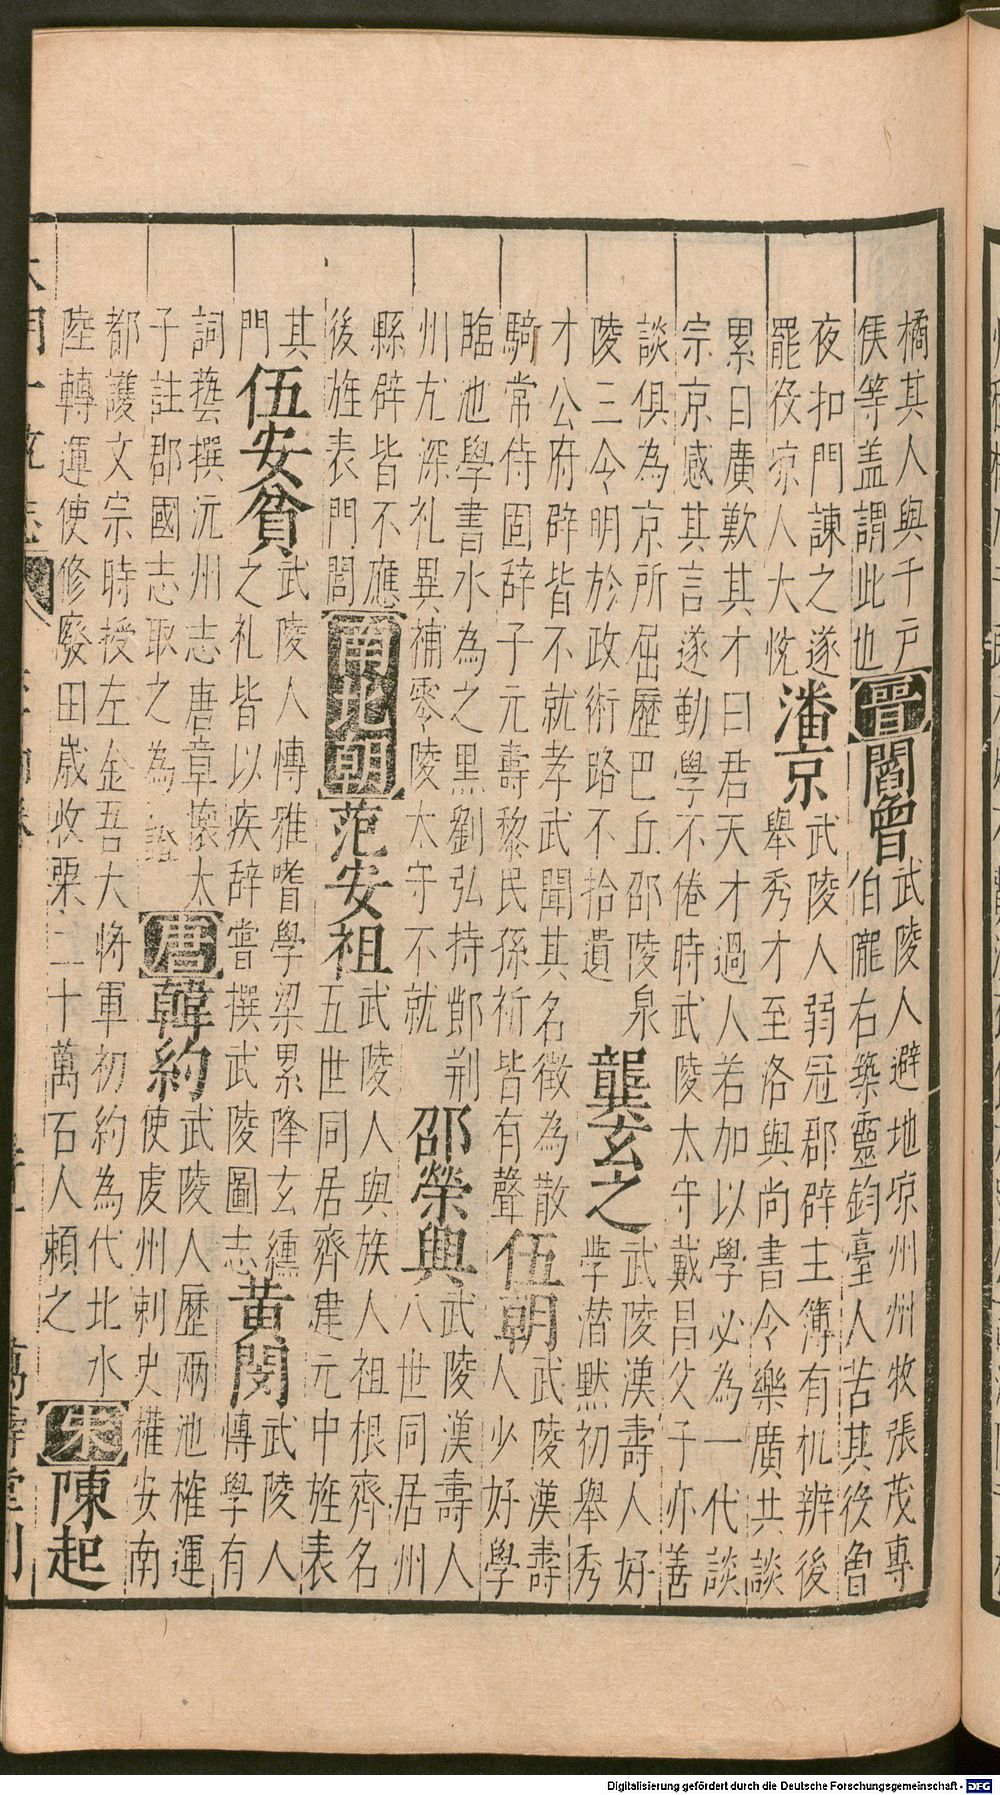 橘其人與千户
侯等盖謂此也
晉 閻曾
武陵人避地凉州州牧張茂專
伯隴右築靈鈞臺人苦其役曾
夜扣門諫之遂
罷役凉人大恱
潘京
武陵人弱冠郡辟主簿有机辨後
舉秀才至洛與尚書令樂廣共談
累日廣歎其才曰君天才過人若加以學必為一代談
宗京感其言遂勤學不倦時武陵太守戴昌父子亦善
談俱為京所屈歷巴丘邵陵泉
陵三令明於政術路不拾遺
龔玄之
武陵漢壽人好
學潜默初舉秀
才公府辟皆不就孝武聞其名徵為散
騎常侍固辞子元壽黎民孫祈皆有聲
伍朝
武陵漢壽
人少好學
臨池學書水為之黑劉弘持鄼荆
州尤深礼異補零陵太守不就
邵榮興
武陵漢壽人
八世同居州
縣辟皆不應
後旌表門閭
南北朝 范安祖
武陵人與族人祖根齊名
五世同居齊建元中旌表
其
門
伍安貧
武陵人慱雅嗜學梁累降玄纁
之礼皆以疾辞嘗撰武陵圖志
黄閔
武陵人
慱學有
詞藝撰沅州志唐章懷太
子註郡國志取之為證
唐 韓約
武陵人歷兩池榷運
使虔州刺史權安南
都護文宗時授左金吾大將軍初約為代北水
陸轉運使修廢田嵗收粟二十萬石人頼之
宋 陳起
大明一統志
萬壽堂刊
Digitalisierung gefördert durch die Deutsche Forschungsgemeinschaft - DFG